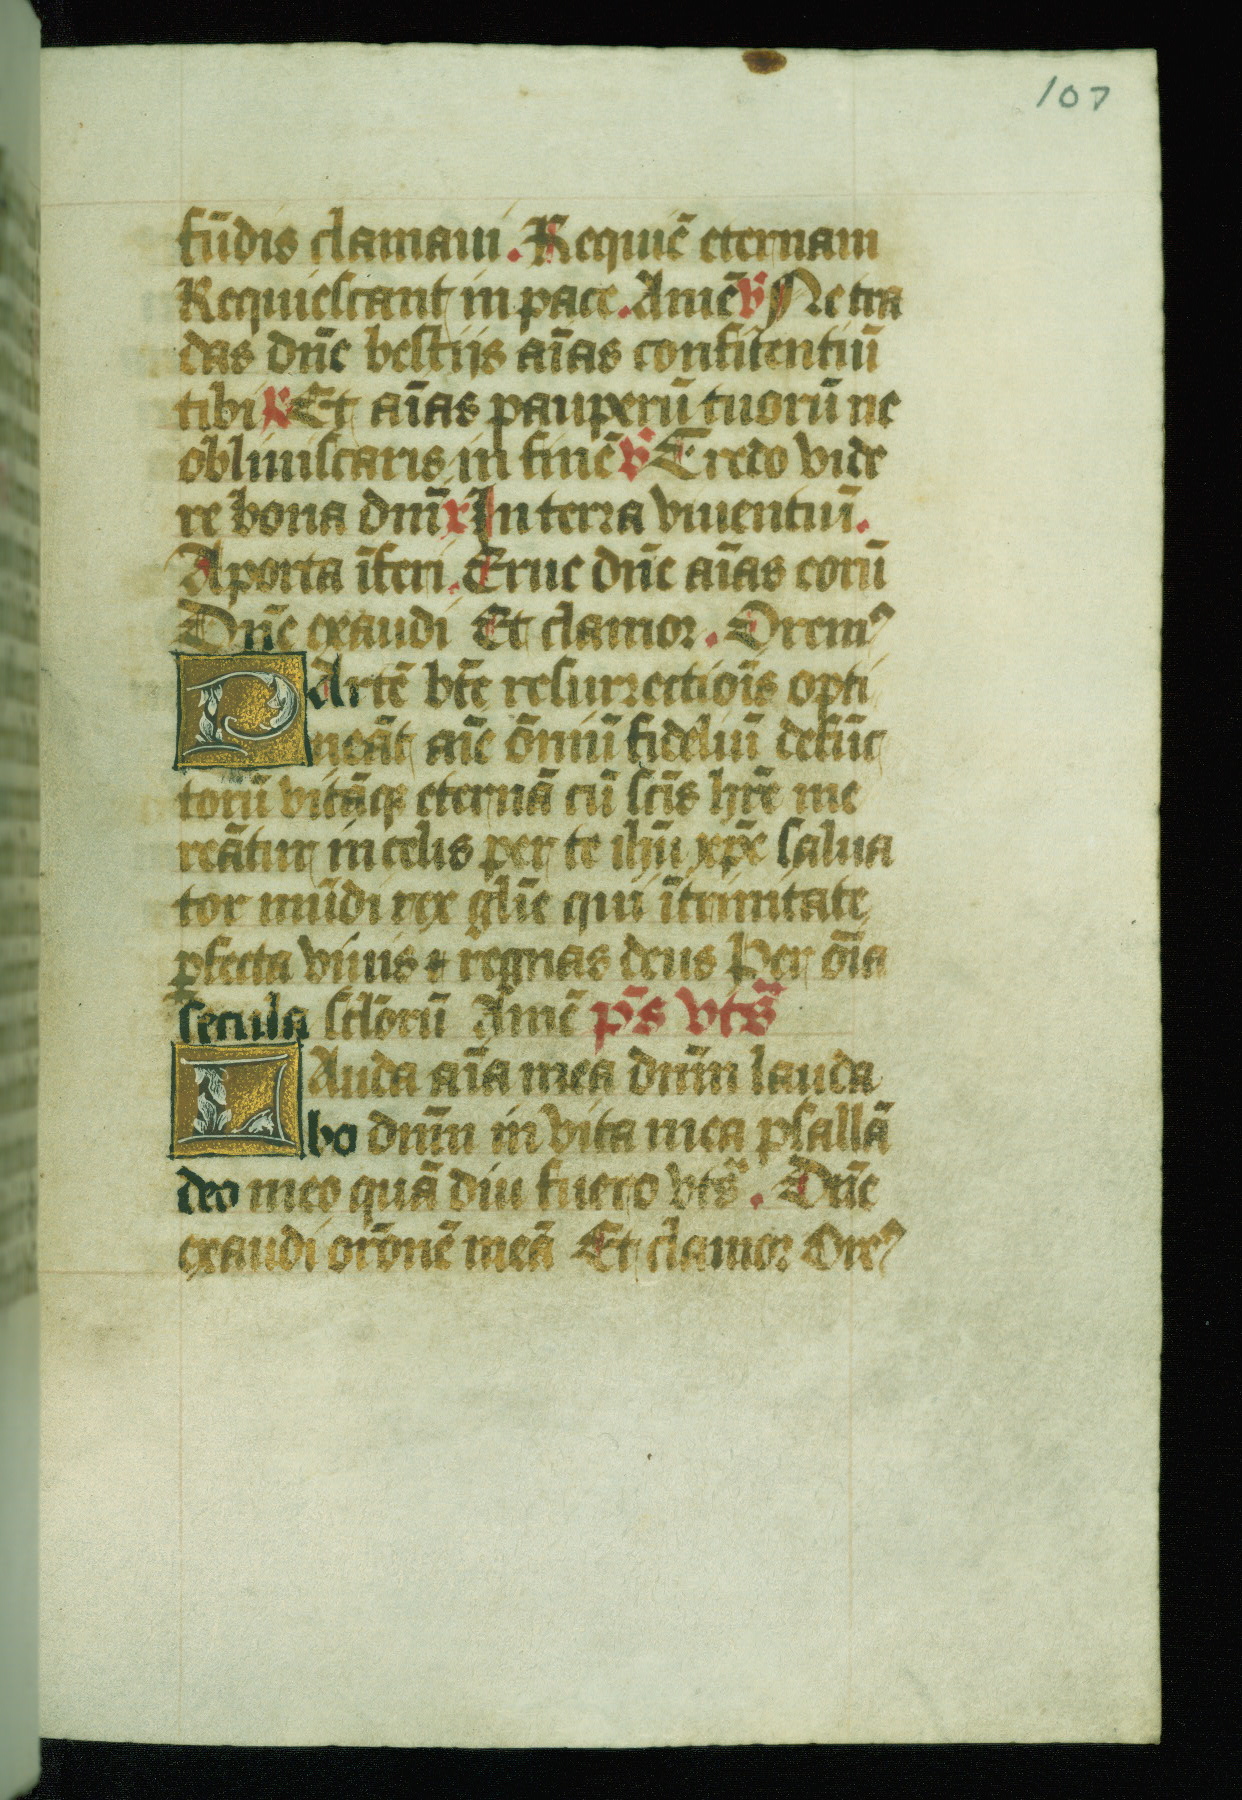 107
fūdis clamaui. Requiē eternam
Requiescant in pace. Amē ℣ Ne tra
das dn̄e bestijs aīas confitentiū
tibi ℟ Et aīas pauperū tuorū ne
obliuiscaris in finē ℣ Credo vide
re bona dn̄i ℟ In terra viuentiū.
A porta īferi. Erue dn̄e aīas eorū
Dn̄e exaudi Et clamor. Oremꝰ
PArtē bt̄e resurrectiōis opti
neāt aīe ōmiū fideliū defūc
torū vitāqꝫ eternā cū sc̄is hr̄e me
reātur in celis per te ihū xp̄e salua
tor mūdi rex glīe qui ī trinitate
ꝑfecta viuis ⁊ regnas deus Per ōia
secula sclōrū Amē p̄s vts̄
LAuda aīa mea dn̄m lauda
bo dn̄m in vita mea psallā
deo meo quā diu fuero vts̄. Dn̄e
exaudi orōnē meā Et clamor Oreꝰ